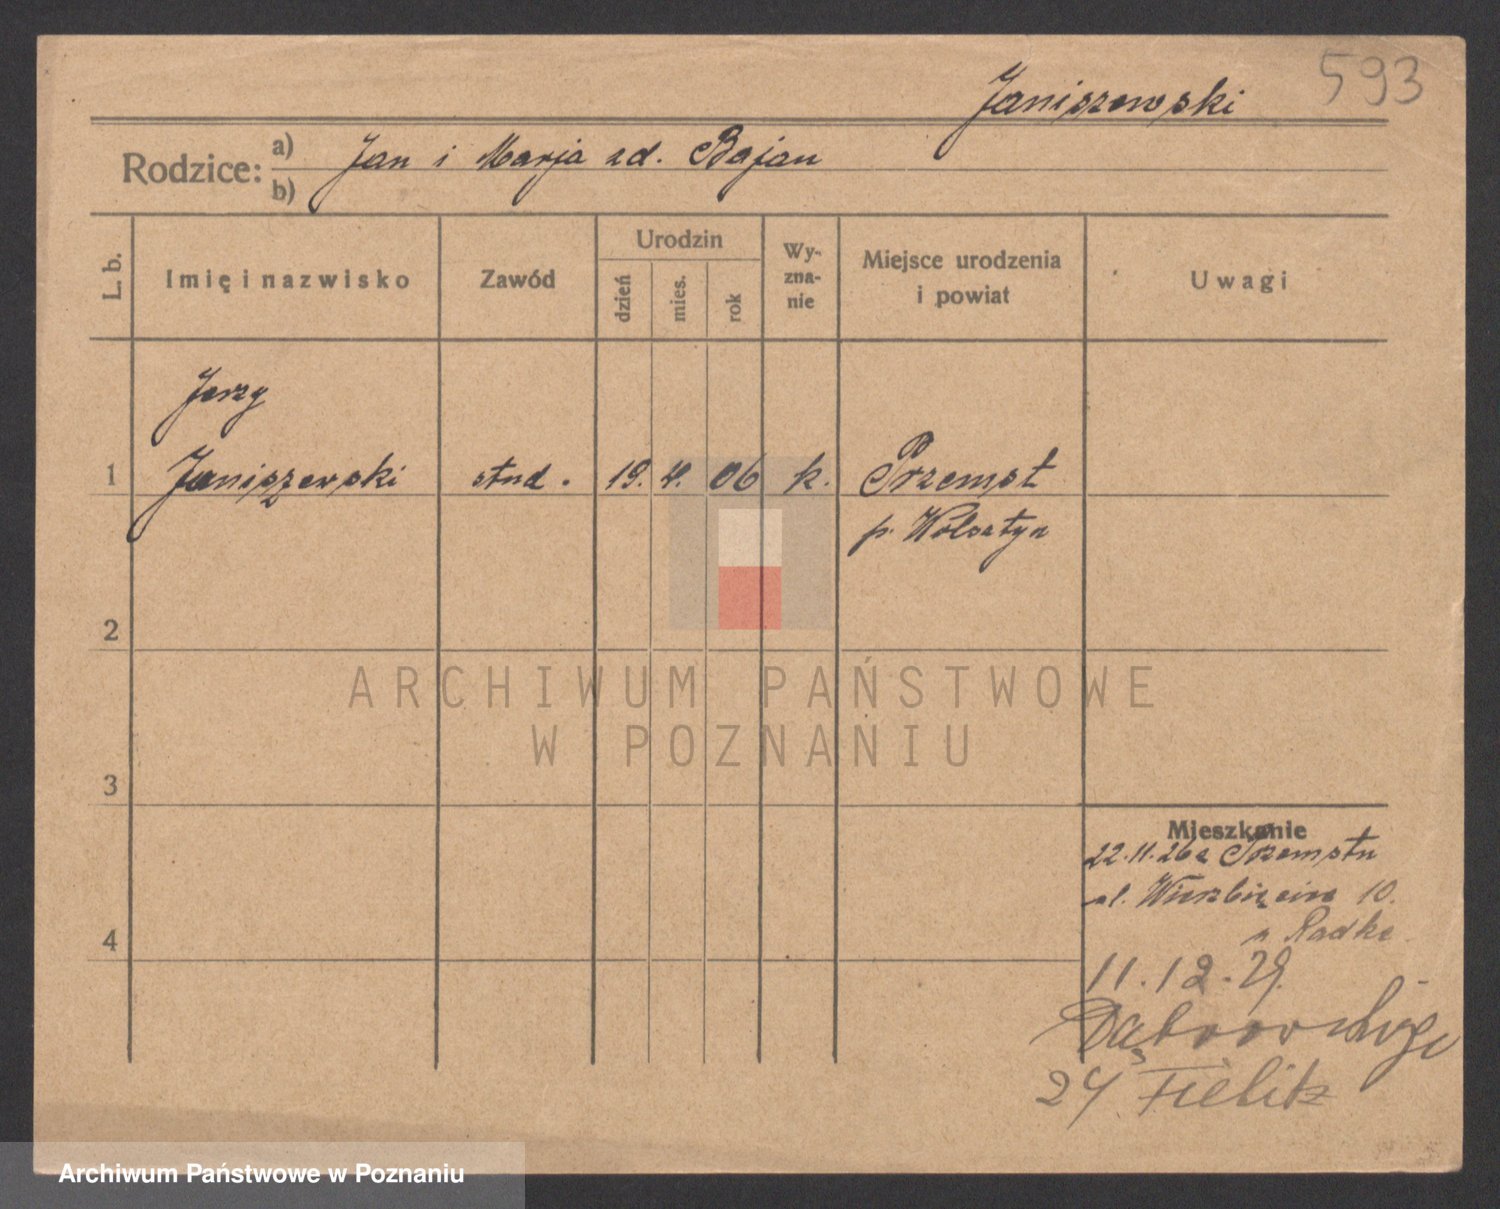 593
Janiszewski
Rodzice:
a) Jan i Marja zd. Bajan
b)
L. b.
Imię i nazwisko
Zawód
Urodzin
dzień
mies.
rok
Wy-
zna-
nie
Miejsce urodzenia
i powiat
Uwagi
Jerzy
1 Janiszewski stud. 19. 4. 06 k. Przemęt
p. Wolsztyn
2
3
4
Mieszkanie
22.11.26 z Przemętu
ul. Wierzbięcice 10.
u Radke
11.12.29.
Dąbrowskiego
24 Fielitz
ARCHIWUM PAŃSTWOWE
W POZNANIU
Archiwum Państwowe w Poznaniu